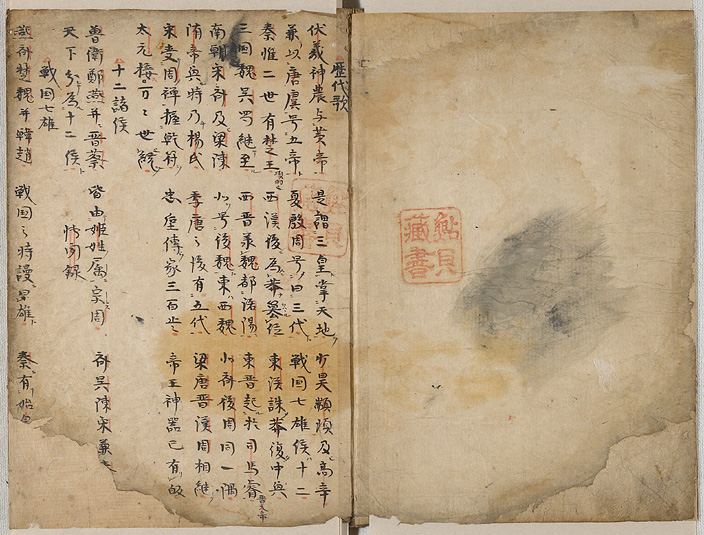 歷代歌
伏羲神農与黄帝 是謂三皇掌天地 少昊顓頊及高辛
兼以唐虞号五帝 夏殷周号曰三代 戦国七雄侯十二
秦惟二世有楚王 西漢後為莽簒位 東漢誅莽復中興
三国魏呉蜀継至 西晋承魏都洛陽 東晋起於司馬睿
南朝宋斉及梁陳 北号後魏東西魏 北斉後周同一隅
隋帝興時乃楊氏 李唐之後有五代 梁唐晋漢周相継
宋受周禅握乾符 忠厚傳家三百 帝王神器已有皈
太元接万々世統
十二諸侯
魯衛鄭燕并晋蔡 皆由姫姓属宗周 斉呉陳宋兼
天下分為十二侯
戦国七雄
燕斉楚魏并韓趙 戦国之時謾呈雄 秦有始
鮎貝藏書